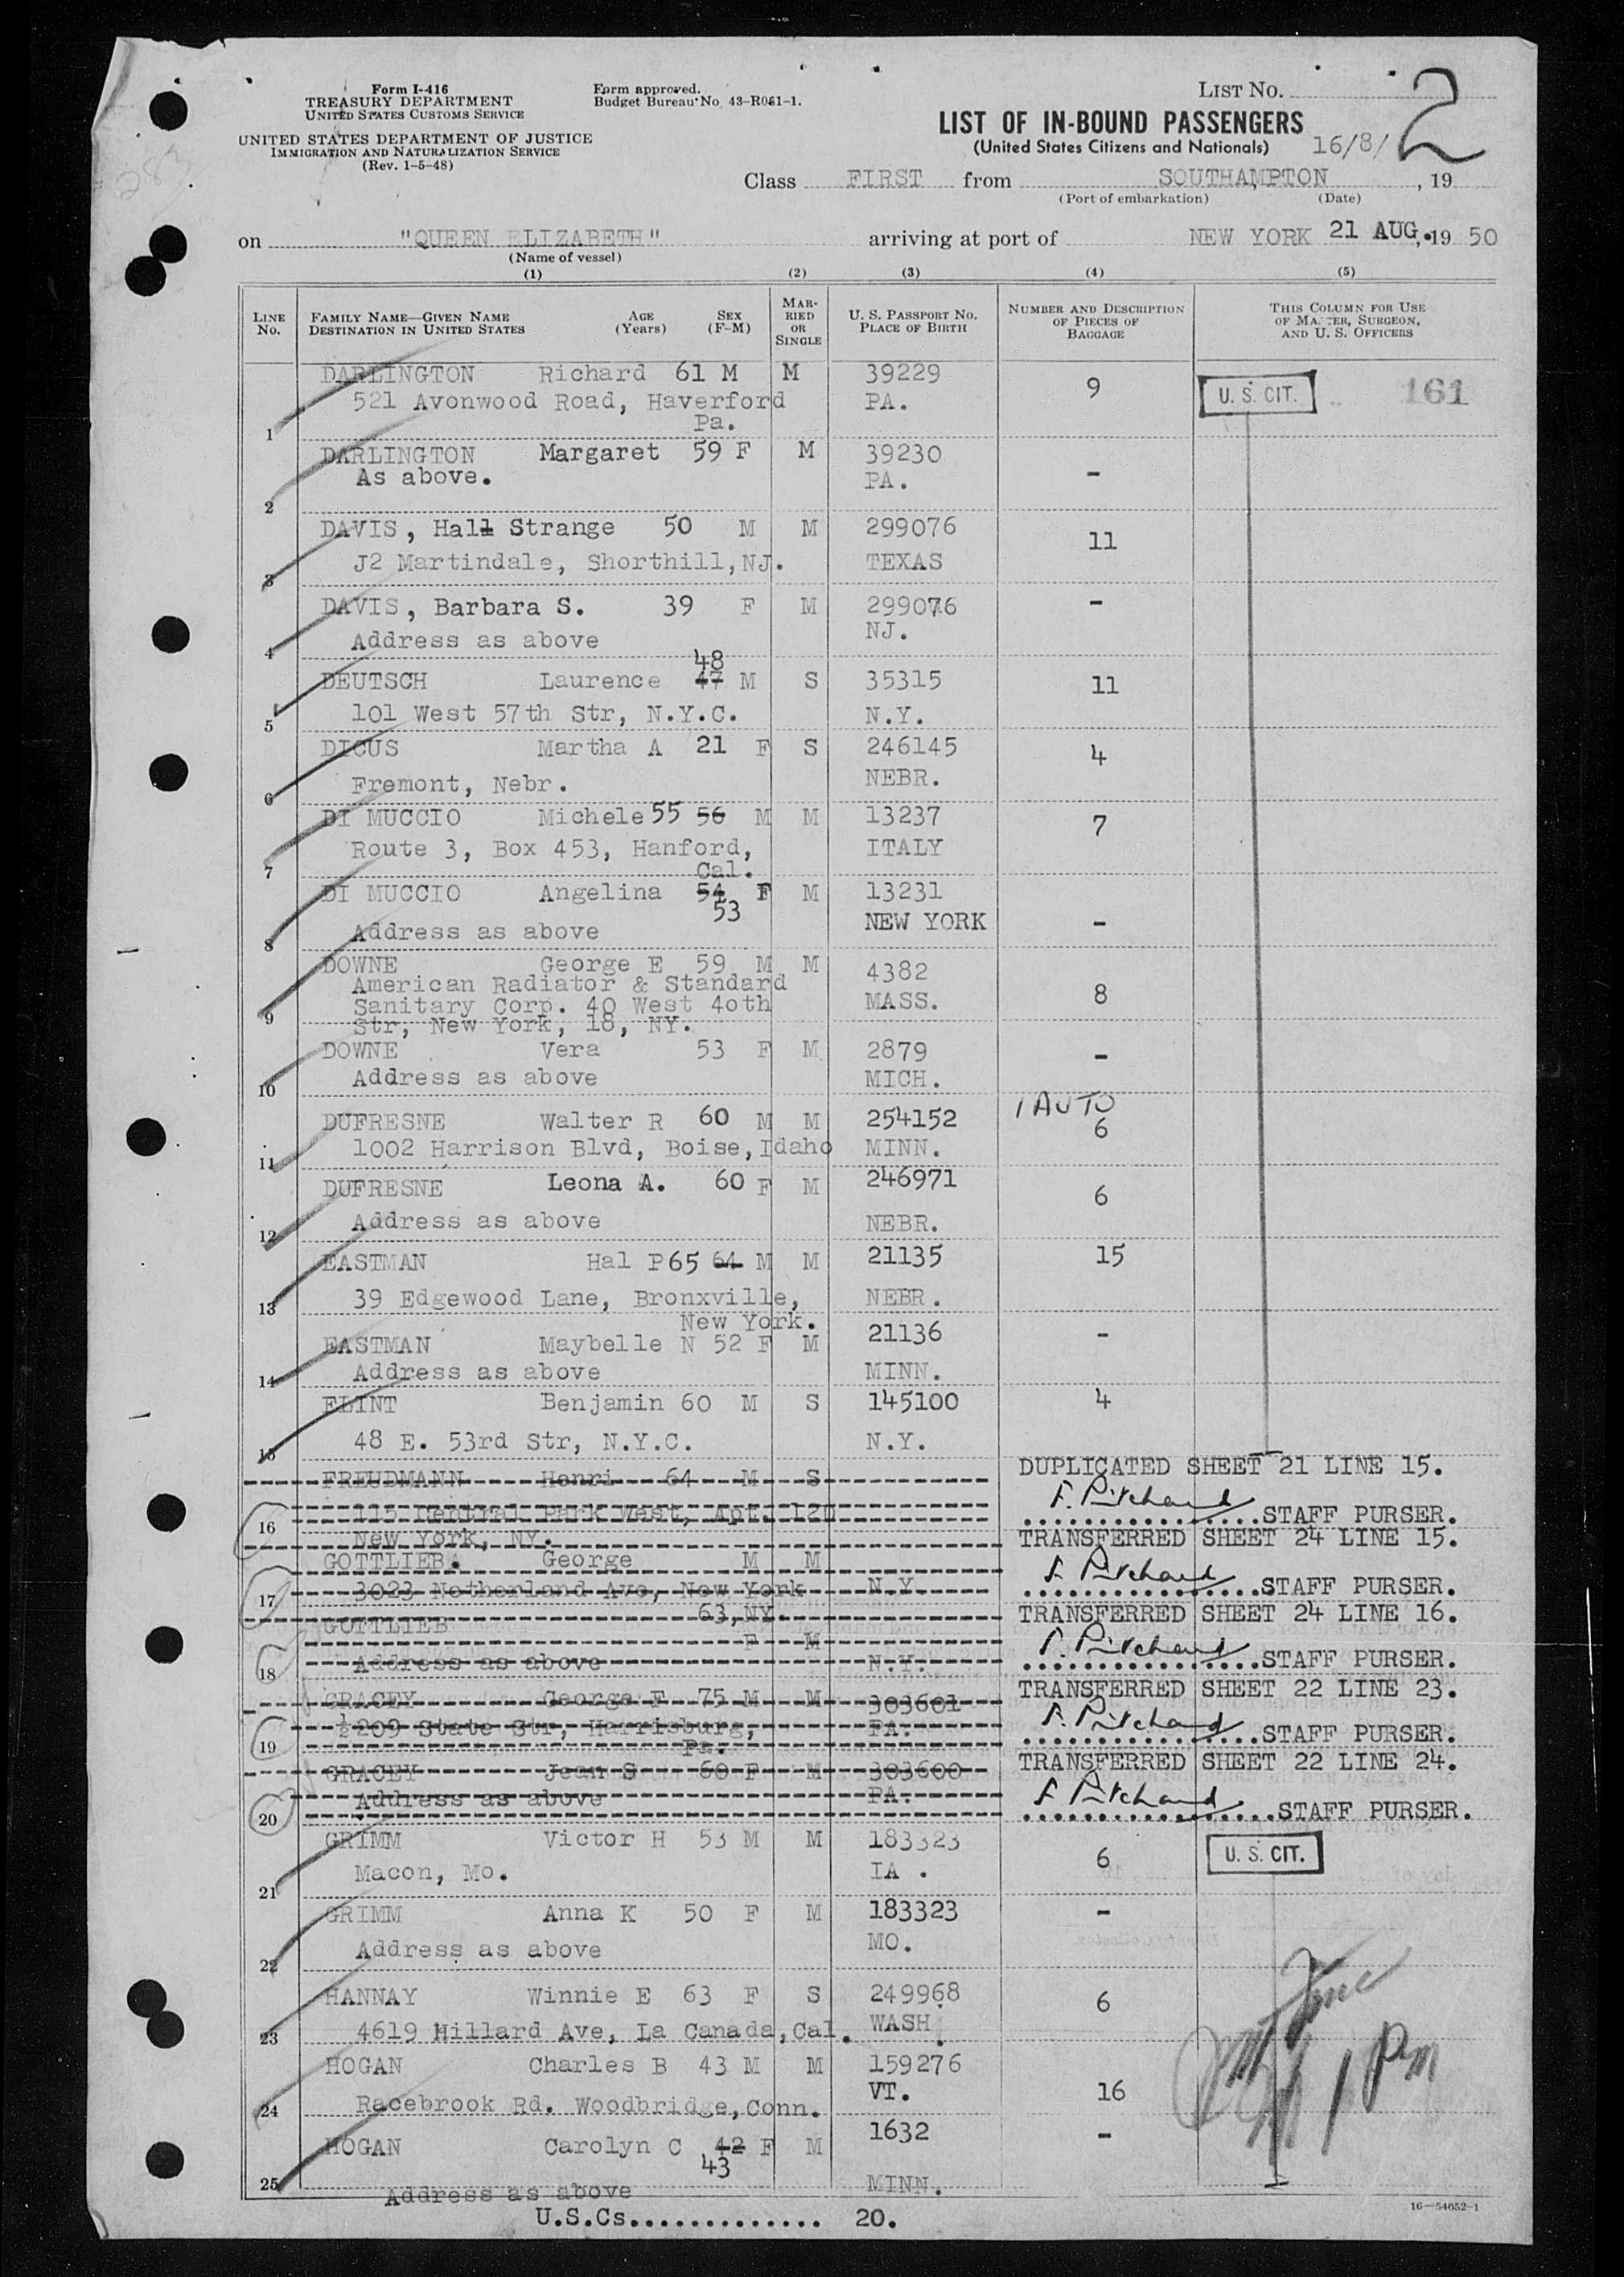 Form I-416
TREASURY DEPARTMENT
UNITED STATES CUSTOMS SERVICE
UNITED STATES DEPARTMENT OF JUSTICE
IMMIGRATION AND NATURALIZATION SERVICE
(Rev. 1-5-48)
Form approved.
Budget Bureau No. 43-R061-1.
LIST NO.
2
LIST OF IN-BOUND PASSENGERS
(United States Citizens and Nationals) 16/8/
Class FIRST from SOUTHAMPTON , 19
(Port of embarkation) (Date)
on "QUEEN ELIZABETH" arriving at port of NEW YORK 21 AUG. , 19 50
(Name of vessel)
(1) (2) (3) (4) (5)
LINE NO.
FAMILY NAME—GIVEN NAME AGE SEX
DESTINATION IN UNITED STATES (YEARS) (F-M)
MARRIED OR SINGLE
U. S. PASSPORT NO.
PLACE OF BIRTH
NUMBER AND DESCRIPTION OF PIECES OF BAGGAGE
THIS COLUMN FOR USE OF MASTER, SURGEON, AND U. S. OFFICERS
DARLINGTON Richard 61 M M 39229 9 U. S. CIT. 161
521 Avonwood Road, Haverford PA.
1 Pa.
DARLINGTON Margaret 59 F M 39230 -
As above. PA.
2
DAVIS, Hall Strange 50 M M 299076 11
3 J2 Martindale, Shorthill, NJ. TEXAS
DAVIS, Barbara S. 39 F M 299076 -
4 Address as above NJ.
48
DEUTSCH Laurence 47 M S 35315 11
5 101 West 57th Str, N.Y.C. N.Y.
DICUS Martha A 21 F S 246145 4
6 Fremont, Nebr. NEBR.
DI MUCCIO Michele 55 56 M M 13237 7
Route 3, Box 453, Hanford, ITALY
7 Cal.
DI MUCCIO Angelina 54 F M 13231
53 NEW YORK -
8 Address as above
DOWNE George E 59 M M 4382
American Radiator & Standard
9 Sanitary Corp. 40 West 40th MASS. 8
Str, New York, 18, NY.
DOWNE Vera 53 F M 2879 -
10 Address as above MICH.
1 AUTO
DUFRESNE Walter R 60 M M 254152 6
11 1002 Harrison Blvd, Boise, Idaho MINN.
DUFRESNE Leona A. 60 F M 246971 6
12 Address as above NEBR.
EASTMAN Hal P 65 64 M M 21135 15
13 39 Edgewood Lane, Bronxville, NEBR.
New York.
EASTMAN Maybelle N 52 F M 21136 -
14 Address as above MINN.
ELINT Benjamin 60 M S 145100 4
15 48 E. 53rd Str, N.Y.C. N.Y.
FREUDMANN Henri 64 M S DUPLICATED SHEET 21 LINE 15.
16 115 Central Park West, Apt. 12D F. Pritchard STAFF PURSER.
New York, NY. TRANSFERRED SHEET 24 LINE 15.
GOTTLIEB. George M M
17 3023 Netherland Ave, New York N.Y. F. Pritchard STAFF PURSER.
63, NY. TRANSFERRED SHEET 24 LINE 16.
GOTTLIEB F M
18 Address as above N.Y. F. Pritchard STAFF PURSER.
GRACEY George F 75 M M 303601 TRANSFERRED SHEET 22 LINE 23.
19 ½209 State Str, Harrisburg, PA. F. Pritchard STAFF PURSER.
Pa.
GRACEY Jean S 60 F M 303600 TRANSFERRED SHEET 22 LINE 24.
20 Address as above PA. F. Pritchard STAFF PURSER.
GRIMM Victor H 53 M M 183323 6 U. S. CIT.
21 Macon, Mo. IA .
GRIMM Anna K 50 F M 183323 -
22 Address as above MO.
HANNAY Winnie E 63 F S 249968 6
23 4619 Hillard Ave, La Canada, Cal. WASH.
HOGAN Charles B 43 M M 159276 16
24 Racebrook Rd. Woodbridge, Conn. VT.
HOGAN Carolyn C 42 F M 1632 -
43
25 Address as above MINN.
1 PM
U.S.Cs.............. 20.
16—54652-1